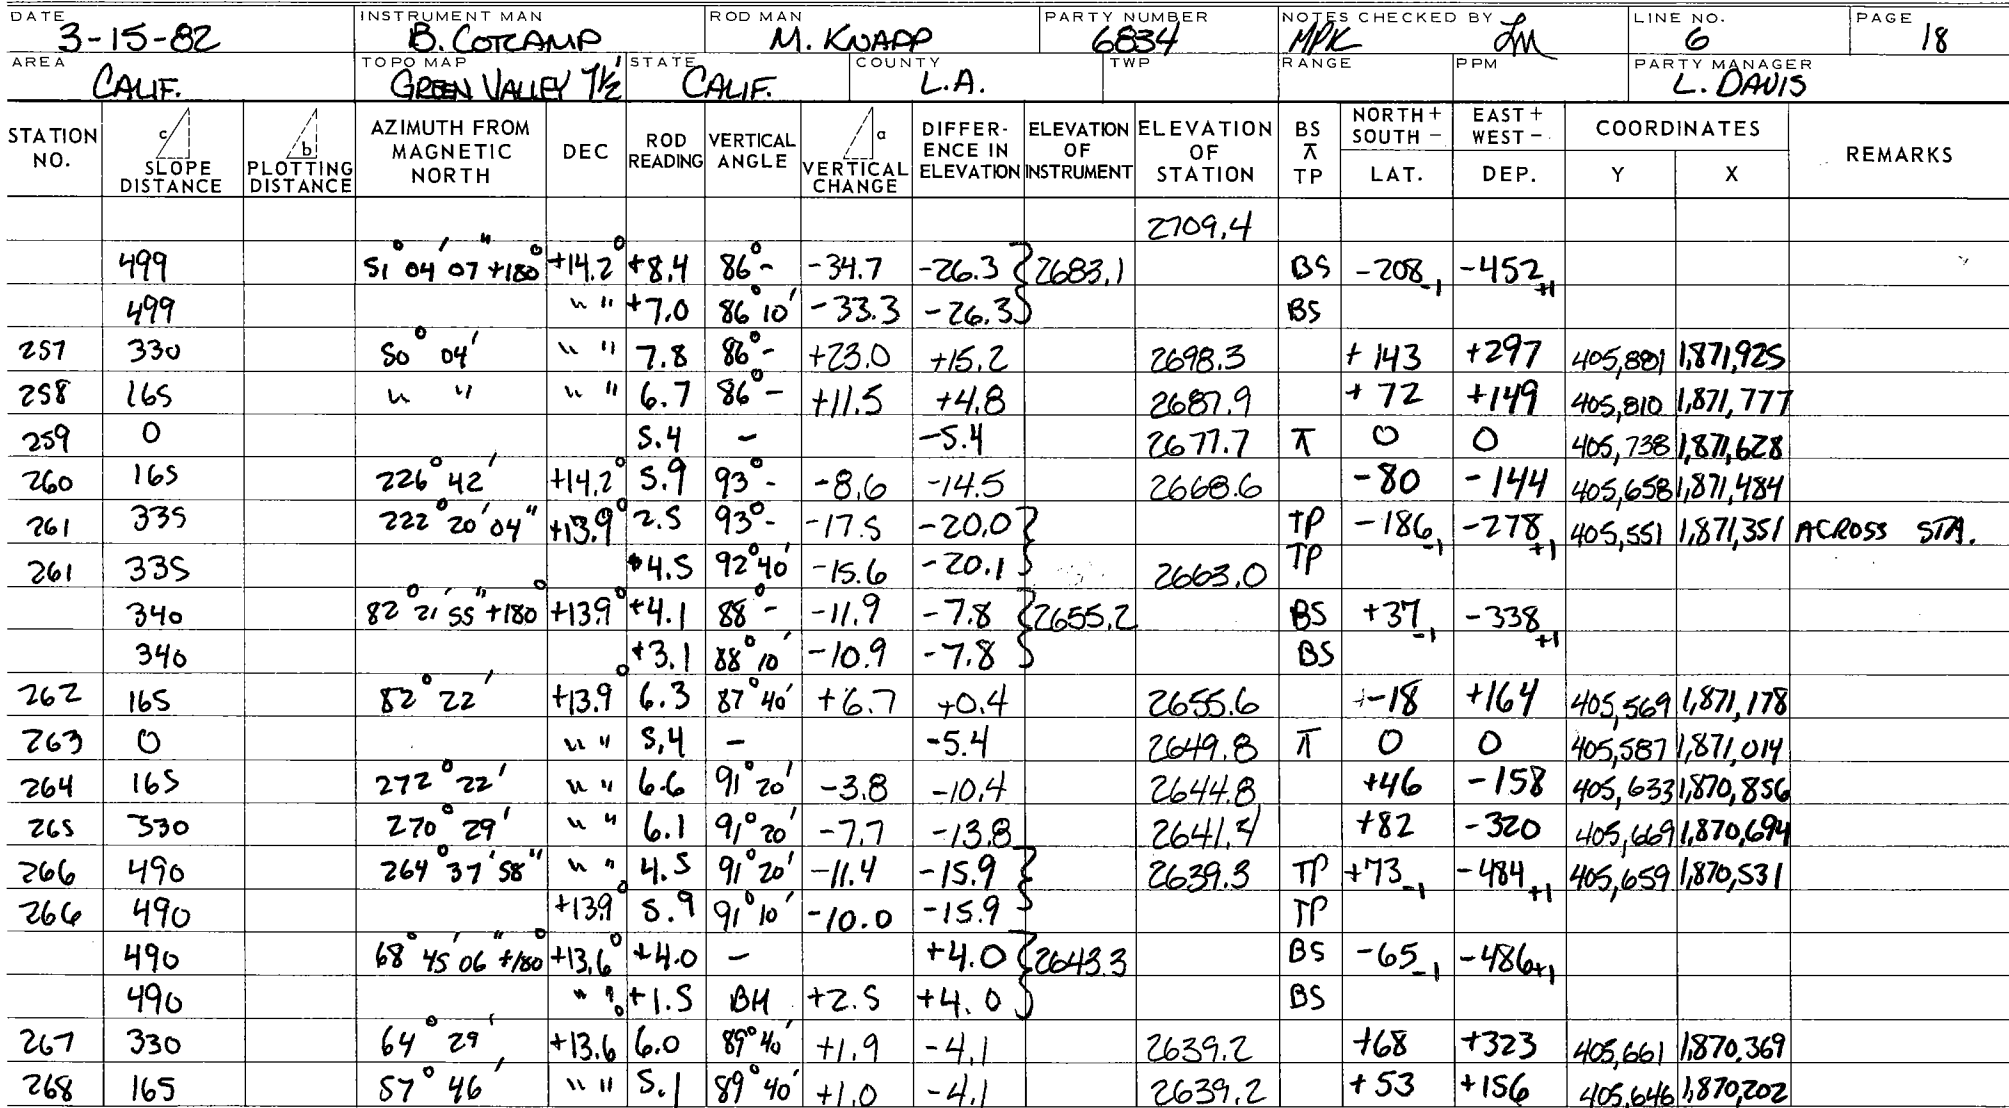 DATE INSTRUMENT MAN ROD MAN PARTY NUMBER NOTES CHECKED BY LINE NO. PAGE
3-15-82 B. COTCAMP M. KNAPP 6834 MPK LM 6 18
AREA TOPO MAP STATE COUNTY TWP RANGE PPM PARTY MANAGER
CALIF. GREEN VALLEY 7½' CALIF. L.A. L. DAVIS
STATION NO. c SLOPE DISTANCE b PLOTTING DISTANCE AZIMUTH FROM MAGNETIC NORTH DEC ROD READING VERTICAL ANGLE a VERTICAL CHANGE DIFFER-ENCE IN ELEVATION ELEVATION OF INSTRUMENT ELEVATION OF STATION BS ⊼ TP NORTH + SOUTH - LAT. EAST + WEST - DEP. COORDINATES Y X REMARKS
2709.4
499 51° 04' 07" +180° +14.2° +8.4 86°- -34.7 -26.3 2683.1 BS -208 -1 -452 +1
499 " " +7.0 86°10' -33.3 -26.3 BS
257 330 50° 04' " " 7.8 86°- +23.0 +15.2 2698.3 +143 +297 405,881 1,871,925
258 165 " " " " 6.7 86°- +11.5 +4.8 2687.9 +72 +149 405,810 1,871,777
259 0 5.4 - -5.4 2677.7 ⊼ 0 0 405,738 1,871,628
260 165 226° 42' +14.2° 5.9 93°- -8.6 -14.5 2668.6 -80 -144 405,658 1,871,484
261 335 222° 20' 04" +13.9° 2.5 93°- -17.5 -20.0 TP -186 -1 -278 +1 405,551 1,871,351 ACROSS STA.
261 335 4.5 92°40' -15.6 -20.1 2663.0 TP
340 82° 21' 55" +180° +13.9° +4.1 88°- -11.9 -7.8 2655.2 BS +37 -1 -338 +1
340 +3.1 88°10' -10.9 -7.8 BS
262 165 82° 22' +13.9° 6.3 87°40' +6.7 +0.4 2655.6 -18 +164 405,569 1,871,178
263 0 " " 5.4 - -5.4 2649.8 ⊼ 0 0 405,587 1,871,014
264 165 272° 22' " " 6.6 91°20' -3.8 -10.4 2644.8 +46 -158 405,633 1,870,856
265 330 270° 29' " " 6.1 91°20' -7.7 -13.8 2641.4 +82 -320 405,669 1,870,694
266 490 264° 37' 58" " " 4.5 91°20' -11.4 -15.9 2639.3 TP +73 -1 -484 +1 405,659 1,870,531
266 490 +13.9° 5.9 91°10' -10.0 -15.9 TP
490 68° 45' 06" +180° +13.6° +4.0 - +4.0 2643.3 BS -65 -1 -486 +1
490 " " +1.5 BH +2.5 +4.0 BS
267 330 64° 29' +13.6° 6.0 89°40' +1.9 -4.1 2639.2 +68 +323 405,661 1,870,369
268 165 57° 46' " " 5.1 89°40' +1.0 -4.1 2639.2 +53 +156 405,646 1,870,202